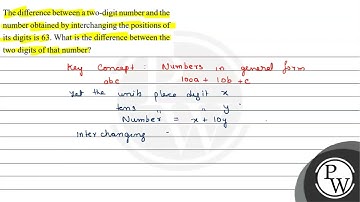 The difference between a two-digit number and the
number obtained by interchanging the positions of
its digits is 63. What is the difference between the
two digits of that number?
Key Concept : Numbers in general form
abc 100a + 10b + c
Let the units place digit x
tens " " y
Number = x + 10y
Interchanging
P
W